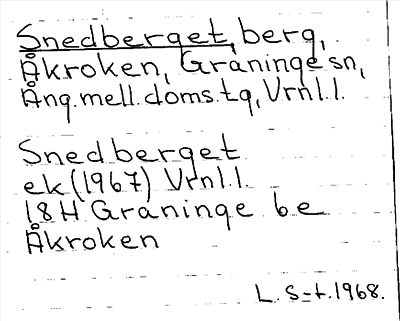 Snedberget, berg,
Åkroken, Graninge sn,
Ång.mell.doms.tg, Vrnl.l.
Snedberget
ek (1967) Vrnl.l.
18H Graninge 6e
Åkroken
L. S-t. 1968.